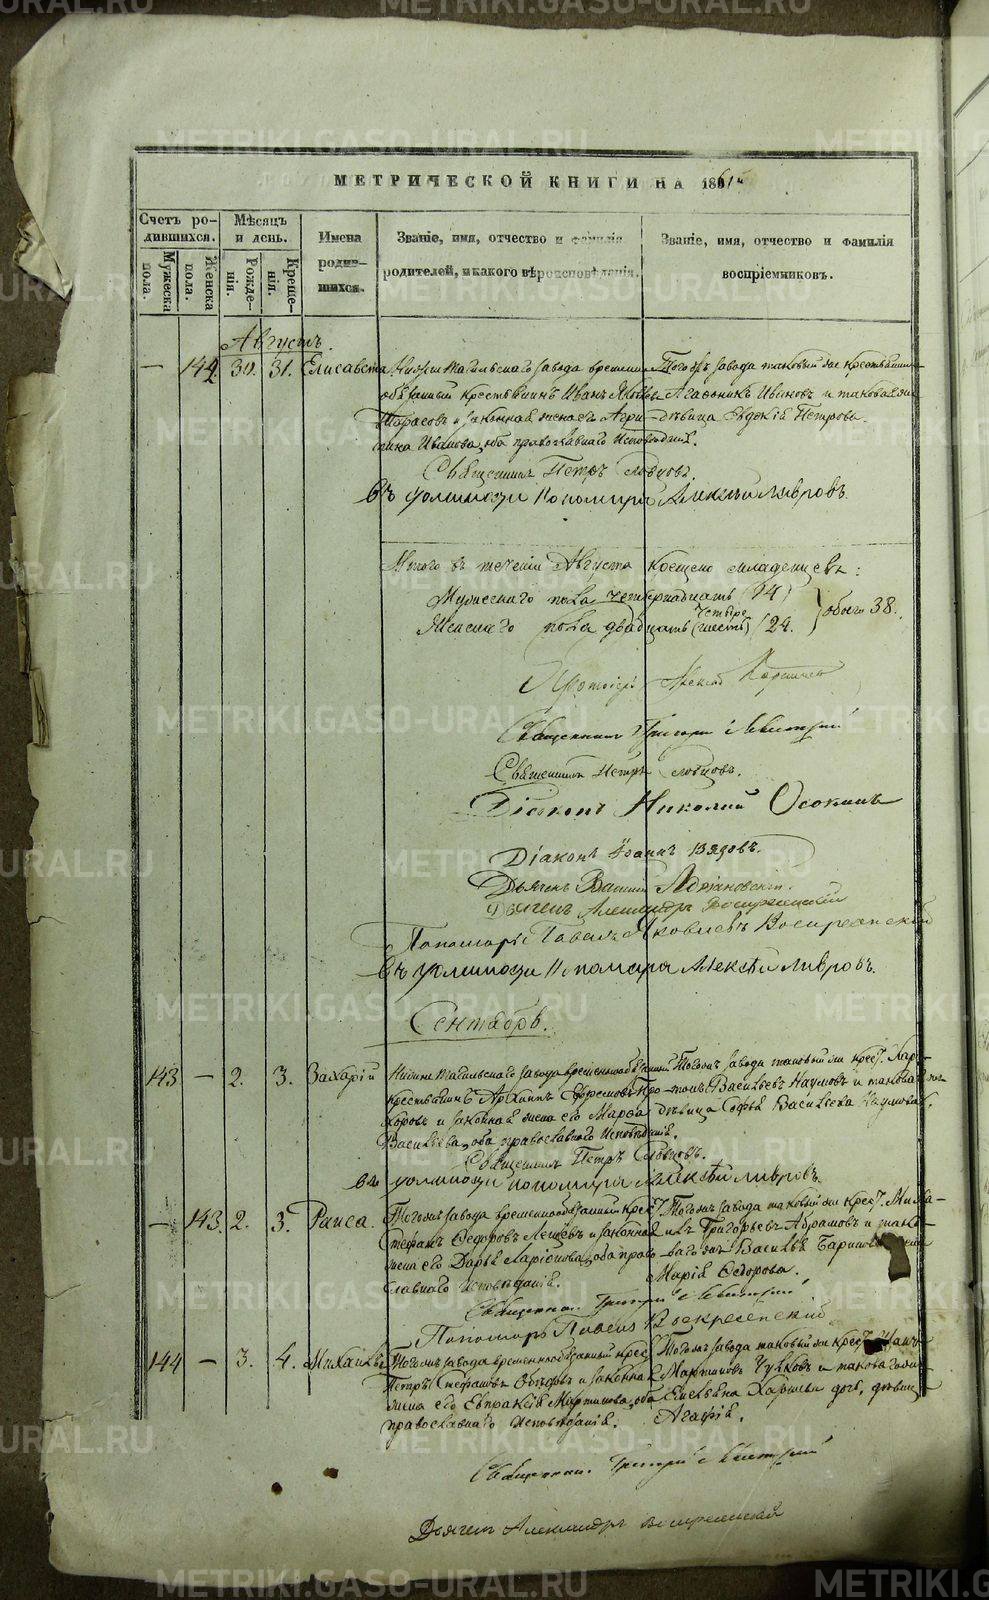 МЕТРИЧЕСКОЙ КНИГИ НА 1861
Счетъ ро-
дившихся.
Мужеска
пола.
Женска
пола.
Мѣсяцъ
и день.
Рожде-
нія.
Креще-
нія.
Имена
родив-
шихся.
Званіе, имя, отчество и фамилія
родителей, и какого вѣроисповѣданія.
Званіе, имя, отчество и фамилія
воспріемниковъ.
Августъ.
— 142 30. 31. Елисавета
Нижне Тагильскаго завода временно
обязанный крестьянинъ Иванъ
Тарасовъ и законная жена его Агри-
пина Иванова, оба православнаго исповѣданія.
Тогожъ завода таковый же крестьянинъ
Агафоникъ Ивановъ и таковая же
дѣвица Евдокія Петрова.
Священникъ Петръ Словцовъ.
въ должности Пономаря Алексѣй Лавровъ.
Итого въ теченіи Августа крещено младенцевъ:
Мужескаго пола четырнадцать (14)
Женскаго пола двадцать четыре (шесть) (24. обоего 38.
Протоіерей
Священникъ Григорій Левитскій
Священникъ Петръ Словцовъ.
Діаконъ Николай Осокинъ
Діаконъ Іоаннъ Удовъ.
Дьячекъ Василій Адріановскій.
Дьячекъ Александръ Воскресенскій
Пономарь Павелъ Яковлевъ Воскресенскій
въ должности Пономаря Алексѣй Лавровъ.
Сентябрь.
143 — 2. 3. Захарій
Нижне Тагильскаго завода временнообязанный
крестьянинъ Архипъ Ефремовъ Про-
хоровъ и законная жена его Марѳа
Васильева, оба православнаго исповѣданія.
Тогожъ завода таковый же крест. Хар-
тонъ Васильевъ Наумовъ и таковая же
дѣвица Софья Васильева Наумова.
Священникъ Петръ Словцовъ.
въ должности пономаря Алексѣй Лавровъ.
— 143. 2. 3. Раиса.
Тогожъ завода временнообязанный крес.
Стефанъ Ѳедоровъ Лещевъ и законная
жена его Дарья Ларіонова, оба право-
славнаго исповѣданія.
Тогожъ завода таковый же крест. Миха-
илъ Григорьевъ Абрамовъ и тако-
ваго же Василья жена
Марія Ѳедорова.
Священникъ Григорій Левитскій
Пономарь Павелъ Воскресенскій
144 — 3. 4. Михаилъ
Тогожъ завода временнообязанный крес.
Петръ Стефановъ и законная
жена его Евпраксія Мартинова, оба
православнаго исповѣданія.
Тогожъ завода таковый же крест. Иванъ
Мартиновъ Чудковъ и таковаго же
дочь, дѣвица
Агафія.
Священникъ Григорій Левитскій
Дьячекъ Александръ Воскресенскій
METRIKI.GASO-URAL.RU